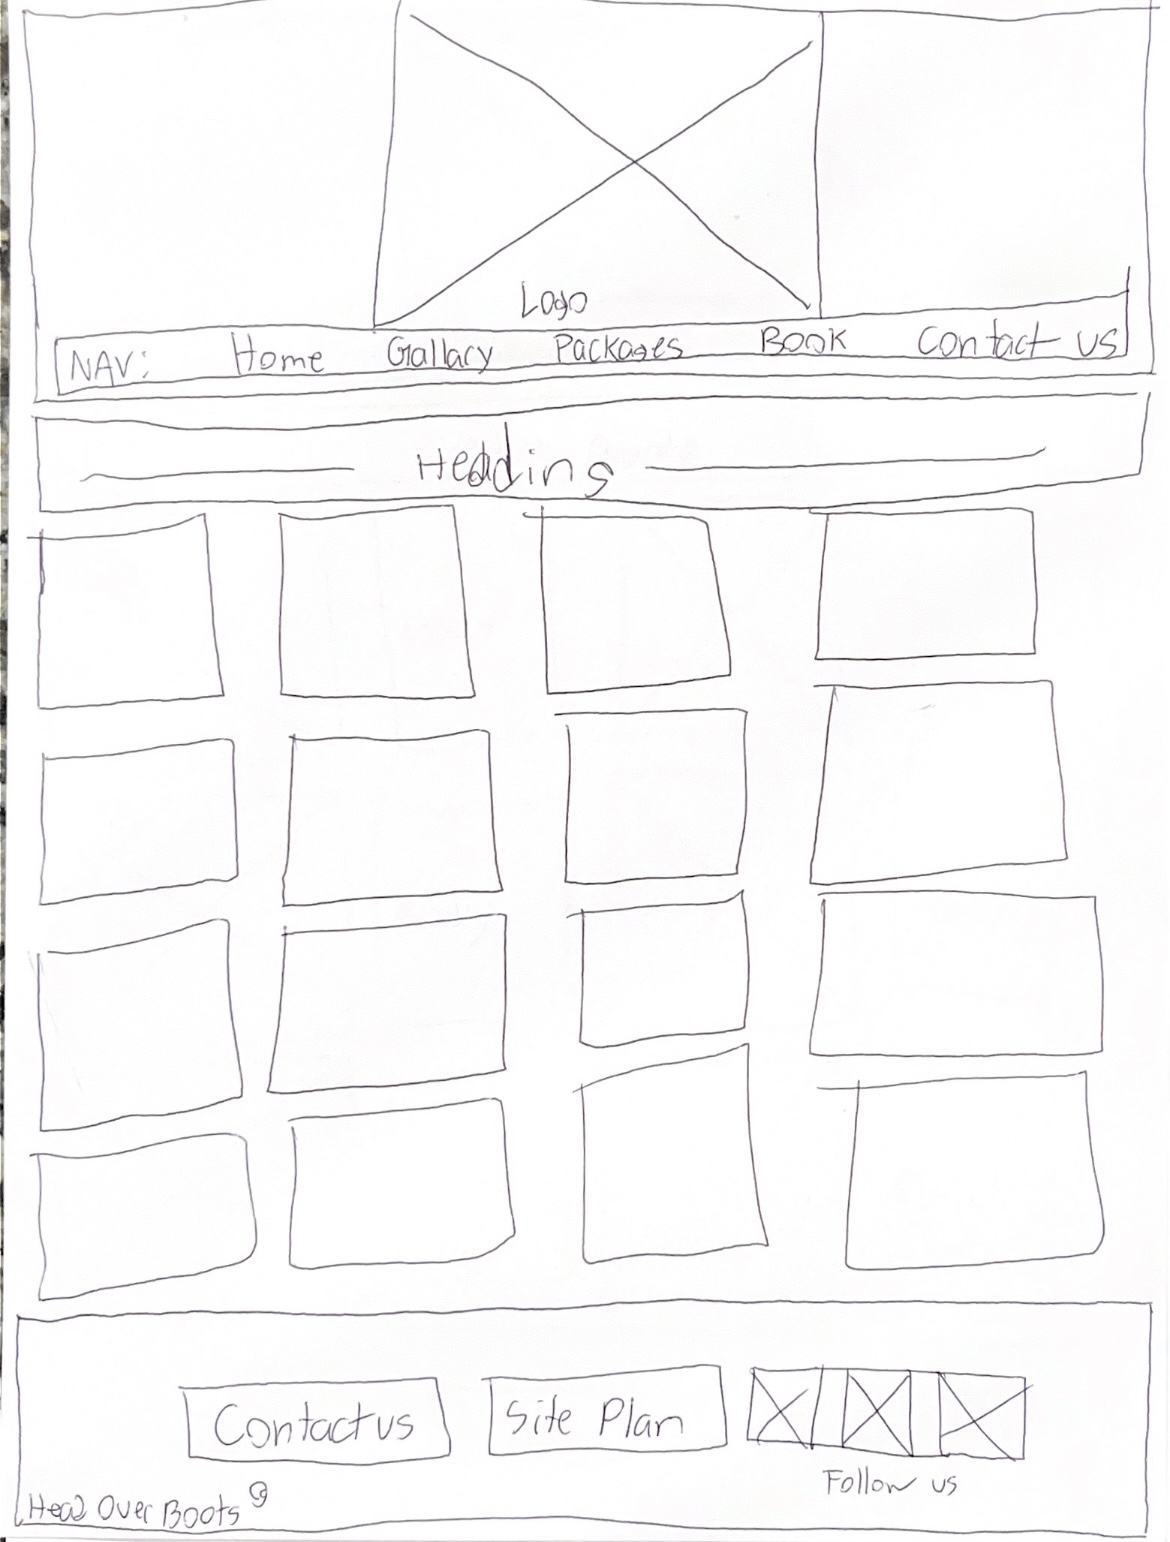 Logo
NAV: Home Gallary Packages Book Contact us
Heading
Contact us Site Plan
Follow us
Head Over Boots ©